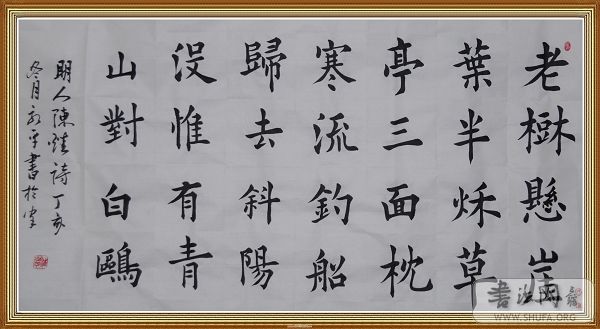 老樹懸崖
葉半秌草
亭三面枕
寒流釣船
歸去斜陽
没惟有青
山對白鷗
明人陳詩丁亥
冬月永平書於
WWW.SHUFA.ORG